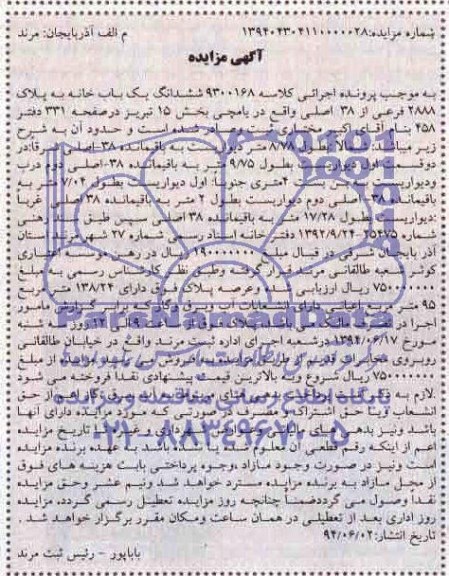 شماره مزایده:۱۳۹۴۰۴۳۰۴۱۱۰۰۰۰۰۲۸ م الف آذربایجان: مرند
آگهی مزایده
به موجب پرونده اجرائی کلاسه ۹۳۰۰۱۶۸ ششدانگ یک باب خانه به پلاک
۲۸۸۸ فرعی از ۳۸ اصلی واقع در یامچی بخش ۱۵ تبریز درصفحه ۳۳۱ دفتر
۴۵۸ بنام آقای اکبر مختاری ثبت وصادر شده است و حدود آن به شرح
زیر میباشد: شمالا بطول ۸/۷۸ متر دیواریست به باقیمانده ۳۸-اصلی شرقا:در
دوقسمت اول دیواریست بطول ۹/۷۵ متر به باقیمانده ۳۸-اصلی دوم درب
ودیواریست به بن بست ۴متری جنوبا: اول دیواریست بطول ۷/۰۴ متر به
باقیمانده ۳۸-اصلی دوم دیواریست بطول ۲ متر به باقیمانده ۳۸ اصلی غربا
:دیواریست بطول ۱۷/۲۸ متر به باقیمانده ۳۸ اصلی سپس طبق سند رهنی
شماره ۲۵۴۷۵-۱۳۹۲/۹/۲۴ دفتر خانه اسناد رسمی شماره ۲۷ شهر مرند استان
آذر بایجان شرقی در قبال مبلغ ۱۹۰۰۰۰۰۰۰ ریال در رهن موسسه اعتباری
کوثر شعبه طالقانی مرند قرار گرفته وطبق نظر کارشناس رسمی به مبلغ
۷۵۰۰۰۰۰۰۰ ریال ارزیابی شده وعرصه پلاک فوق دارای ۱۳۸/۲۴ متر مربع
۹۵ متر مربع اعیانی دارای انشعابات آب وبرق وگاز که برابر گزارش مامور
اجرا در تصرف مالک می باشد پلاک فوق از ساعت ۹ الی ۱۲ روز سه شنبه
مورخ ۱۳۹۴/۰۶/۱۷ درشعبه اجرای اداره ثبت مرند واقع در خیابان طالقانی
روبروی مخابرات قدیم از طریق مزایده به فروش می رسد مزایده از مبلغ
۷۵۰۰۰۰۰۰۰ ریال شروع وبه بالاترین قیمت پیشنهادی نقدا فروخته می شود
.لازم به ذکر است پرداخت بدهی های مربوط به آب وبرق وگاز اعم از حق
انشعاب ویا حق اشتراک و مصرف در صورتی که مورد مزایده دارای آنها
باشد ونیز بدهی های مالیاتی وعوارض شهرداری و غیره تا تاریخ مزایده
اعم از اینکه رقم قطعی آن معلوم شده یا نشده باشد به عهده برنده مزایده
است ونیز در صورت وجود مازاد ،وجوه پرداختی بابت هزینه های فوق
از محل مازاد به برنده مزایده مسترد خواهد شد ونیم عشر وحق مزایده
نقدا وصول می گرددضمنا چنانچه روز مزایده تعطیل رسمی گردد، مزایده
روز اداری بعد از تعطیلی در همان ساعت ومکان مقرر برگزار خواهد شد .
تاریخ انتشار:۹۴/۰۶/۰۲
باباپور - رئیس ثبت مرند
ParsNamadData
۰۲۱-۸۸۳۴۹۶۷۰-۵